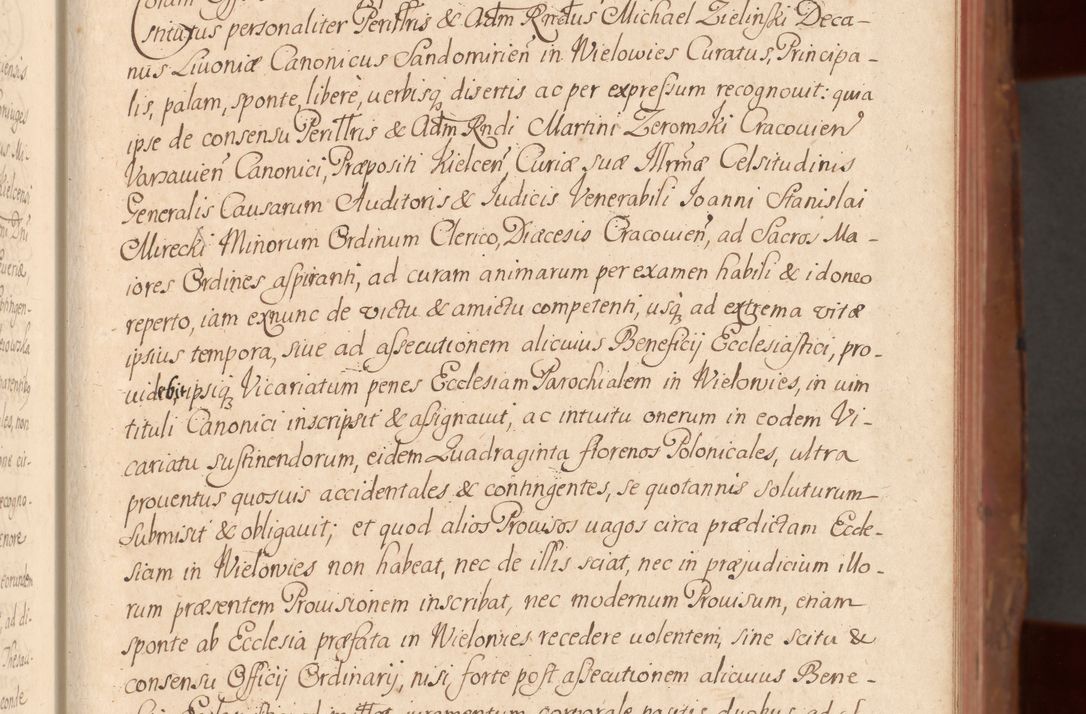 stitutus personaliter Perillris & Adm Rndus Michael Zieliński Deca-
nus Livoniæ Canonicus Sandomirien̄ in Wielowies Curatus, Principa-
lis, palam, sponte, liberè, uerbisq̢ disertis ac per expreſsum recognouit: quia
ipse de consensu Perillris & Adm Rndi Martini Zeromski Cracouien̄
Varsauien̄ Canonici, Præpositi Kielcen̄ Curiæ suæ Illrmæ Celsitudinis
Generalis Causarum Auditoris & Iudicis Venerabili Ioanni Stanislai
Mirecki Minorum Ordinum Clerico, Diæcesis Cracouien̄, ad Sacros Ma-
iores Ordines aſpiranti, ad curam animarum per examen habili & idoneo
reperto, iam exnunc de victu & amictu competenti, usq̢ ad extrema vitæ
ipsius tempora, siue ad aſsecutionem alicuius Beneficij Ecclesiaſtici, pro-
uidebit, ipsiq̢ Vicariatum penes Ecclesiam Parochialem in Wielowies, in uim
tituli Canonici inscripsit & aſsignauit, ac intuitu onerum in eodem Vi-
cariatu suſtinendorum, eidem Quadraginta florenos Polonicales, ultra
prouentus quosuis accidentales & contingentes, se quotannis soluturum
submisit & obligauit; et quod alios Prouisos uagos circa prædictam Eccle-
siam in Wielowies non habeat, nec de illis sciat, nec in præjudicium illo-
rum præsentem Prouisionem inscribat, nec modernum Prouisum, etiam
sponte ab Ecclesia præfata in Wielowies recedere uolentem, sine scitu &
consensu Officij Ordinarij, nisi forte post aſsecutionem alicuius Bene-